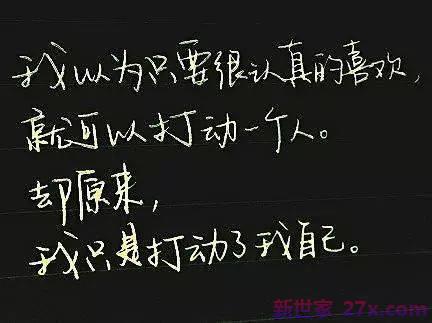 我以为只要很认真的喜欢,
就可以打动一个人。
却原来,
我只是打动了我自己。
新世家 27x.com